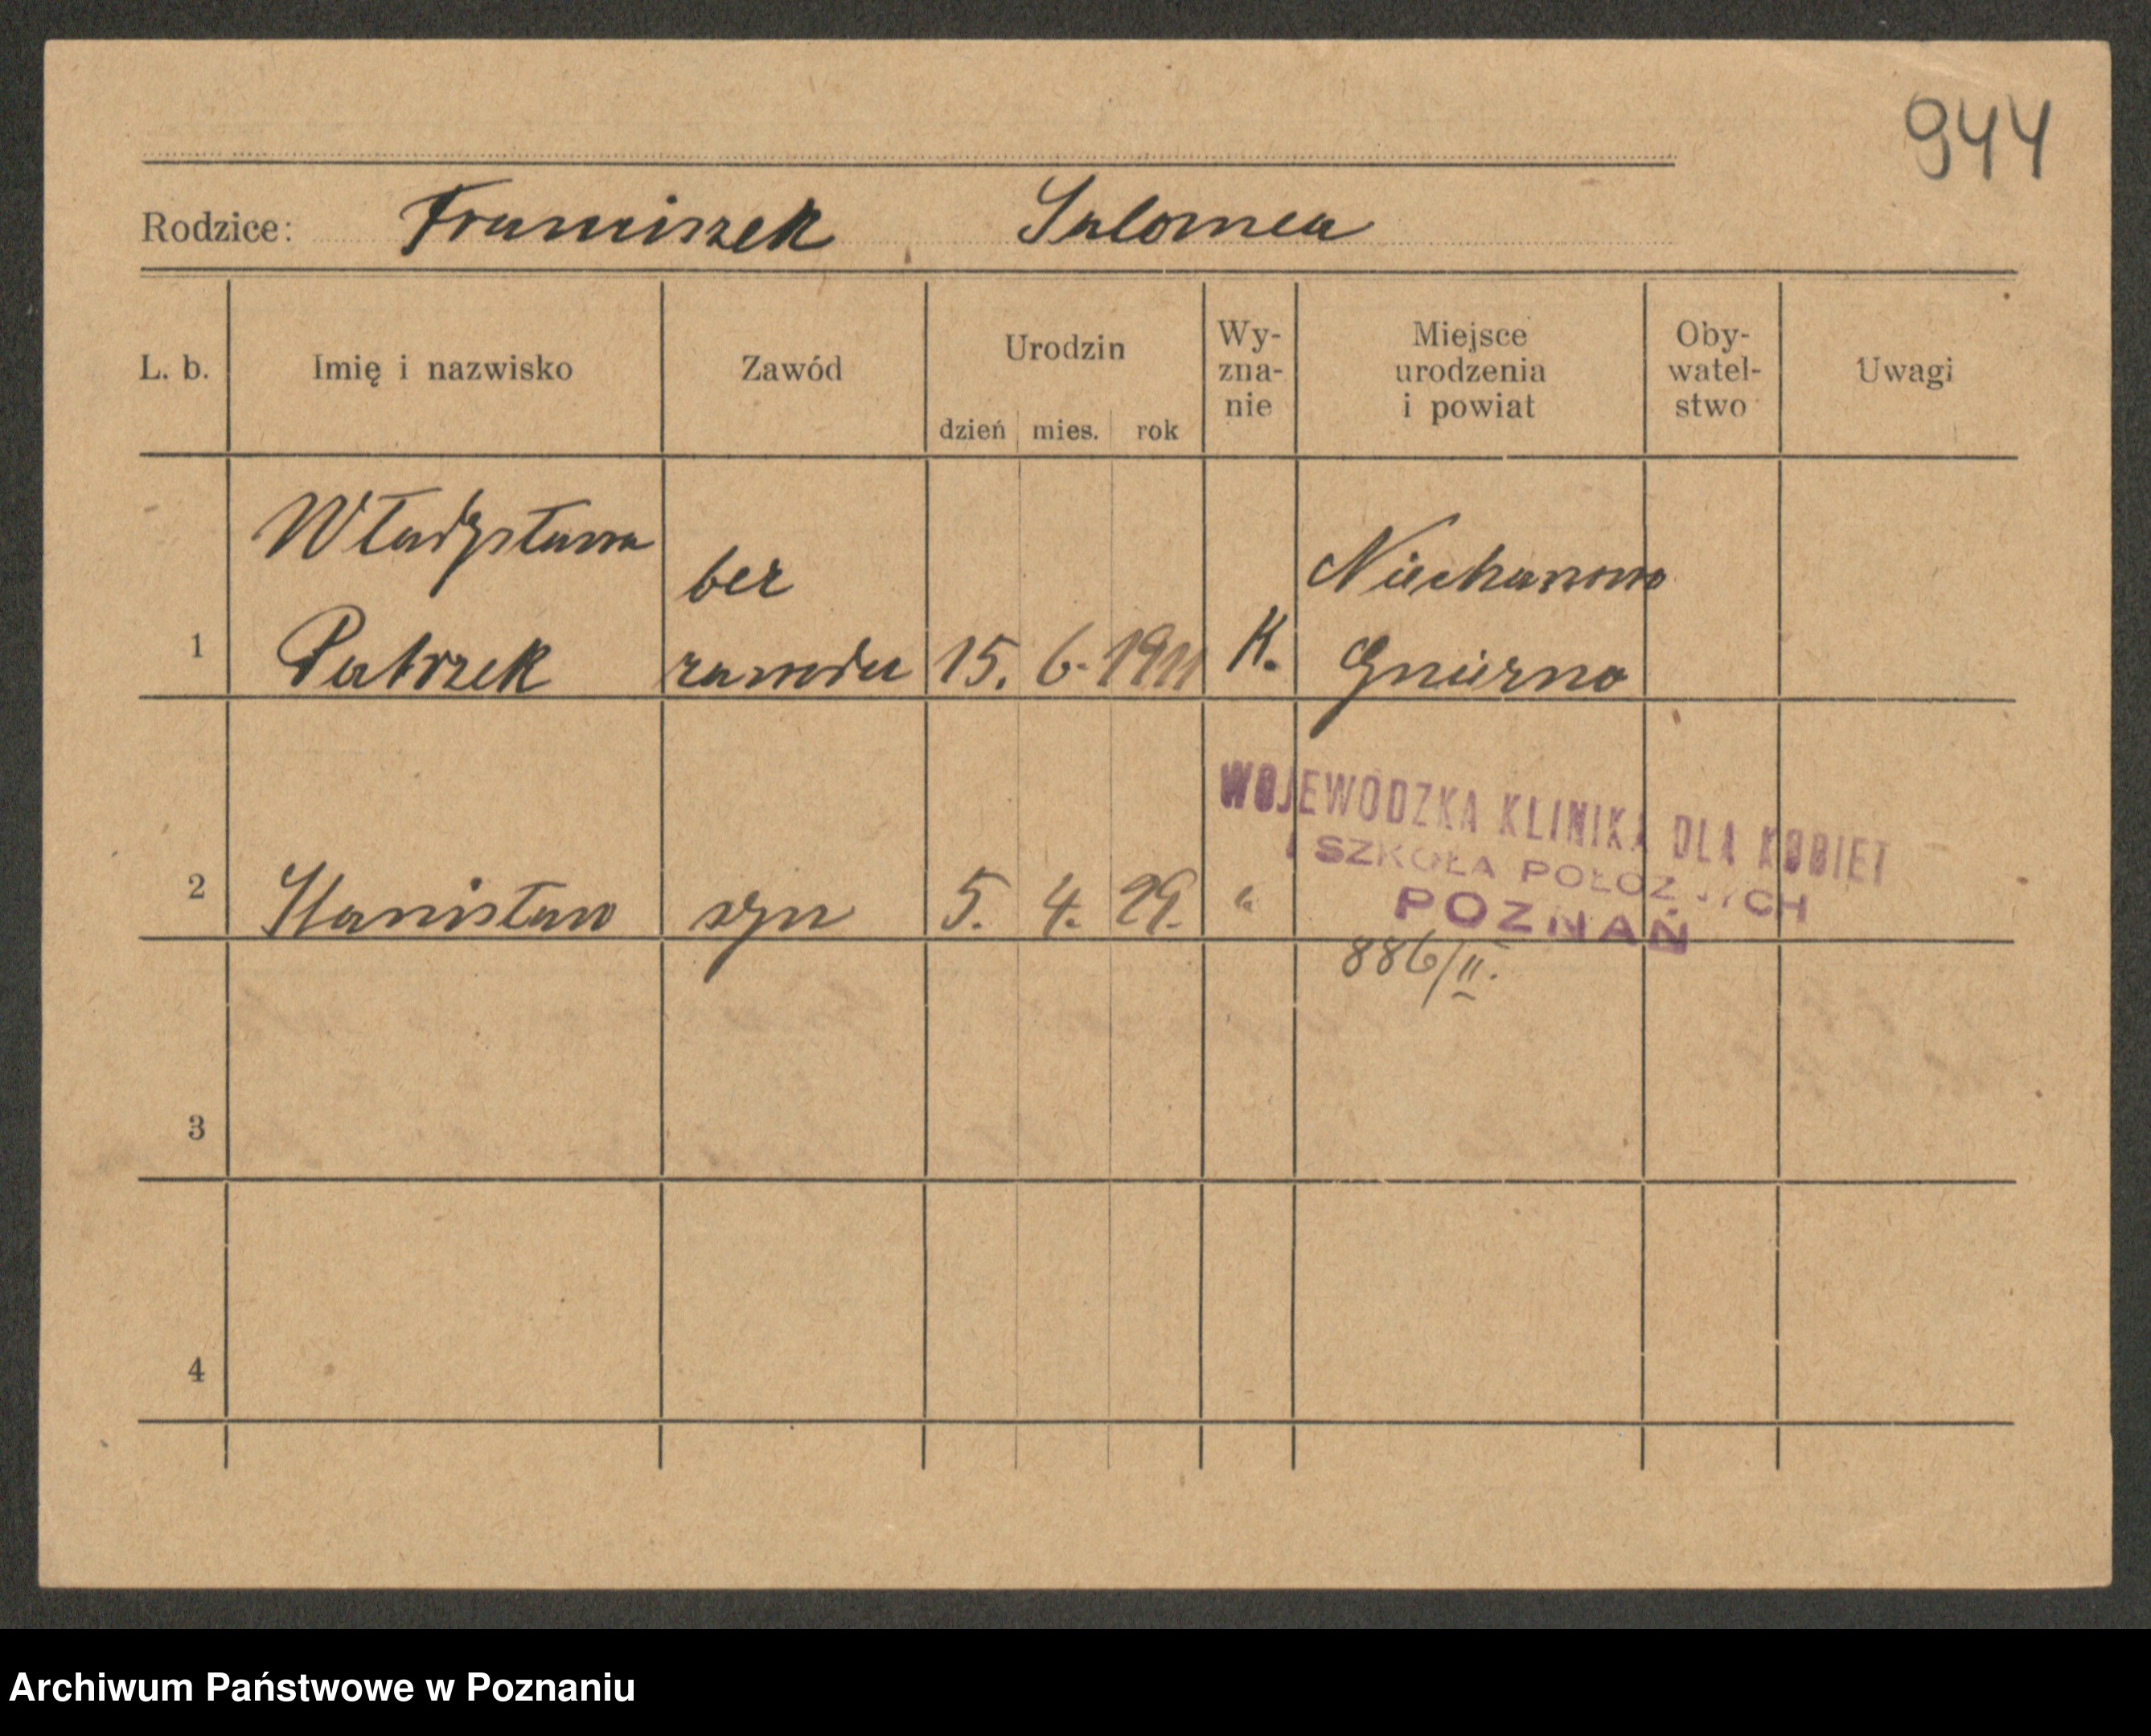 944
Rodzice: Franciszek Salomea
L. b. Imię i nazwisko Zawód Urodzin dzień mies. rok Wy-zna-nie Miejsce urodzenia i powiat Oby-watel-stwo Uwagi
Władysława bez Niechanowo
1 Patrzek zawodu 15. 6. 1911 K. Gniezno
WOJEWÓDZKA KLINIKA DLA KOBIET
I SZKOŁA POŁOŻNYCH
2 Stanisław syn 5. 4. 29. " POZNAŃ
886/II.
3
4
Archiwum Państwowe w Poznaniu